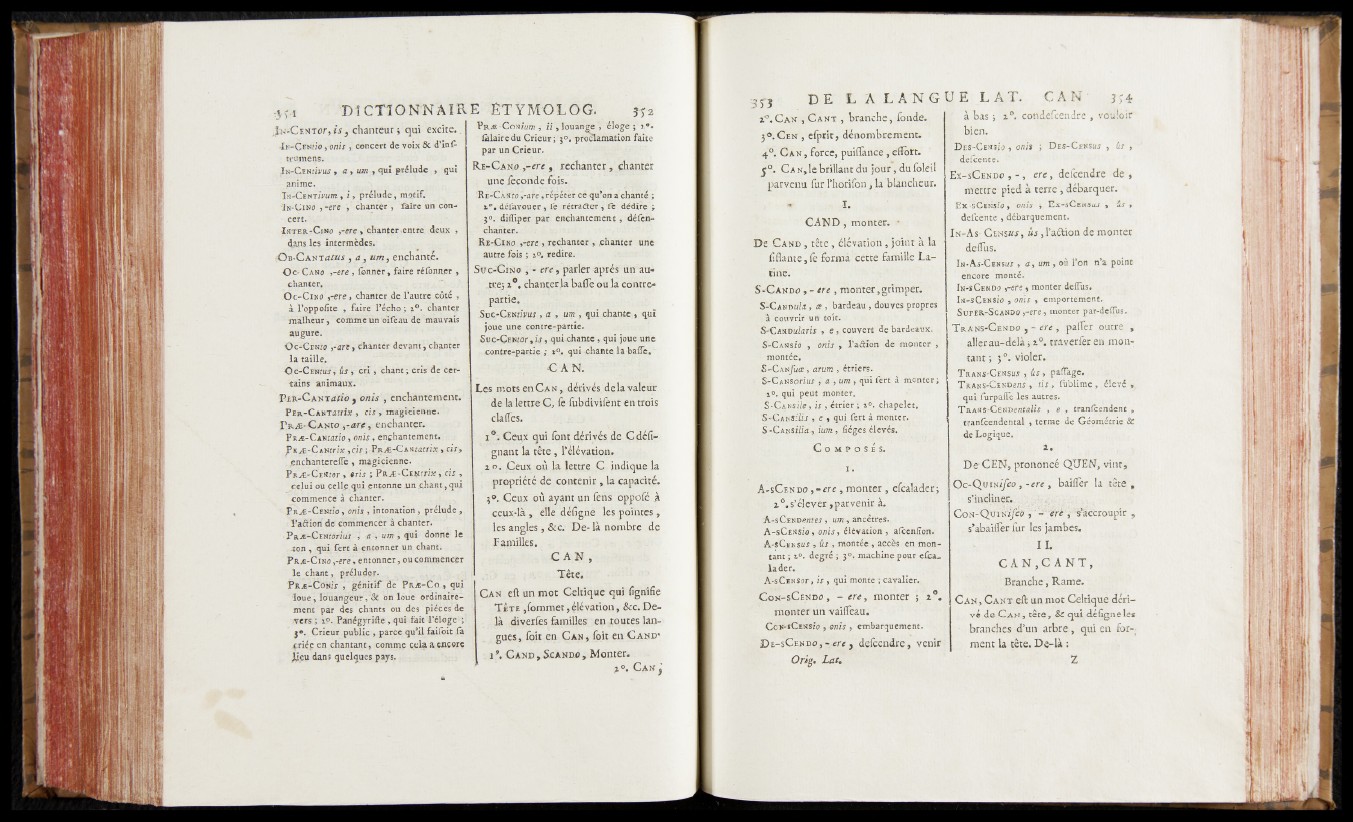 351 DICTIONNAIRE ÉTYMOLOG. 352
In-Centor, is, chanteur ; qui excite.
In-Centio, onis, concert de voix & d'inſ-
trumens.
In-Centivus, a, um, qui prélude, qui
anime.
In-Centivum, i, prélude, motif.
In-Cino, -ere, chanter, faire un con-
cert.
Inter-Cino, -ere, chanter entre deux,
dans les intermèdes.
Ob-Cantatus, a, um, enchanté.
Oc-Cano, -ere, ſonner, faire réſonner,
chanter.
Oc-Cino, -ere, chanter de l'autre côté,
à l'oppoſite, faire l'écho ; 2°. chanter
malheur, comme un oiſeau de mauvais
augure.
Oc-Cento, -are, chanter devant, chanter
la taille.
Oc-Centus, ûs, cri, chant ; cris de cer-
tains animaux.
Per-Cantatio, onis, enchantement.
Per-Cantatrix, cis, magicienne.
Præ-Canto, -are, enchanter.
Præ-Cantatio, onis, enchantement.
Præ-Cantrix, cis ; Præ-Cantatrix, cis,
enchantereſſe, magicienne.
Præ-Centor, oris ; Præ-Centrix, cis,
celui ou celle qui entonne un chant, qui
commence à chanter.
Præ-Centio, onis, intonation, prélude,
l'action de commencer à chanter.
Præ-Centorius, a, um, qui donne le
ton, qui ſert à entonner un chant.
Præ-Cino, -ere, entonner, ou commencer
le chant, préluder.
Præ-Conis, génitif de Præ-Co, qui
loue, louangeur, & on loue ordinaire-
ment par des chants ou des piéces de
vers ; 2°. Panégyriſte, qui fait l'éloge ;
3°. Crieur public, parce qu'il faiſoit ſa
criée en chantant, comme cela a encore
lieu dans quelques pays.
Præ-Conium, ii, louange, éloge ; 2°.
ſalaire du Crieur ; 3°. proclamation faite
par un Crieur.
Re-Cano, -ere, rechanter, chanter
une ſeconde fois.
Re-Canto, -are, répéter ce qu'on a chanté ;
2°. déſavouer, ſe rétracter, ſe dédire ;
3°. diſſiper par enchantement, déſen-
chanter.
Re-Cino, -ere, rechanter, chanter une
autre fois ; 2°. redire.
Suc-Cino, - ere, parler aprés un au-
tre ; 2°. chanter la baſſe ou la contre-
partie.
Suc-Centivus, a, um, qui chante, qui
joue une contre-partie.
Suc-Centor, is, qui chante, qui joue une
contre-partie ; 2°. qui chante la baſſe.
CAN.
Les mots en Can, dérivés de la valeur
de la lettre C, ſe ſubdiviſent en trois
claſſes.
1°. Ceux qui ſont dérivés de C déſi-
gnant la tête, l'élévation.
2°. Ceux où la lettre C indique la
propriété de contenir, la capacité.
3°. Ceux où ayant un ſens oppoſé à
ceux-là, elle déſigne les pointes,
les angles, &c. De-là nombre de
Familles.
CAN,
Tête.
Can eſt un mot Celtique qui ſignifie
Tête, ſommet, élévation, &c. De-
là diverſes familles en toutes lan-
gues, ſoit en Can, ſoit en Cand.
1°. Cand, Scando, Monter.
2°. Can ;
353 DE LA LANGUE LAT. CAN 354
2°. Can, Cant, branche, ſonde.
3°. Cen, eſprit, dénombrement.
4°. Can, force, puiſſance, effort.
5°. Can, le brillant du jour, du ſoleil
parvenu ſur l'horiſon, la blancheur.
I.
CAND, monter.
De Cand, tête, élévation, joint à la
ſiflante, ſe forma cette famille La-
tine.
S-Cando, - ere, monter, grimper.
S-Candula, æ, bardeau, douves propres
à couvrir un toit.
S-Candularis, e, couvert de bardeaux.
S-Cansio, onis, l'action de monter,
montée.
S-Cansuæ, arum, étriers.
S-Cansorius, a, um, qui ſert à monter ;
2°. qui peut monter.
S-Cansile, is, étrier ; 2°. chapelet.
S-Cansilis, e, qui ſert à monter.
S-Cansilia, ium, ſiéges élevés.
Composés.
1.
A-sCendo, -ere, monter, eſcalader ;
2°. s'élever, parvenir à.
A-sCendentes, um, ancêtres.
A-sCensio, onis, élévation, aſcenſion.
A-sCensus, ûs, montée, accès en mon-
tant ; 2°. degré ; 3°. machine pour eſca-
lader.
A-sCensor, is, qui monte ; cavalier.
Con-sCendo, - ere, monter ; 2°.
monter un vaiſſeau.
Con-sCensio, onis, embarquement.
De-sCendo, - ere, deſcendre, venir
Orig. Lat.
à bas ; 2°. condeſcendre, vouloir
bien.
Des-Censio, onis ; Des-Census, ûs,
deſcente.
Ex-sCendo, -, ere, deſcendre de,
mettre pied à terre, débarquer.
Ex-sCensio, onis, Ex-sCensus, ûs,
deſcente, débarquement.
In-As-Census, ûs, l'action de monter
deſſus.
In-As-Census, a, um, où l'on n'a point
encore monté.
In-sCendo, -ere, monter deſſus.
In-sCensio, onis, emportement.
Super-Scando, -ere, monter par-deſſus.
Trans-Cendo, - ere, paſſer outre,
aller au-delà ; 2°. traverſer en mon-
tant ; 3°. violer.
Trans-Census, ûs, paſſage.
Trans-Cendens, tis, ſublime, élevé,
qui ſurpaſſe les autres.
Trans-Cendentalis, e, tranſcendent,
tranſcendental, terme de Géométrie &
de Logique.
2.
De CEN, prononcé QUEN, vint,
Oc-Quinisco, -ere, baiſſer la tête,
s'incliner.
Con-Quinisco, - ere, s'accroupir,
s'abaiſſer ſur les jambes.
II.
CAN, CANT,
Branche, Rame.
Can, Cant eſt un mot Celtique déri-
vé de Can, tête, & qui déſigne les
branches d'un arbre, qui en for-
ment la tête. De-là :
Z